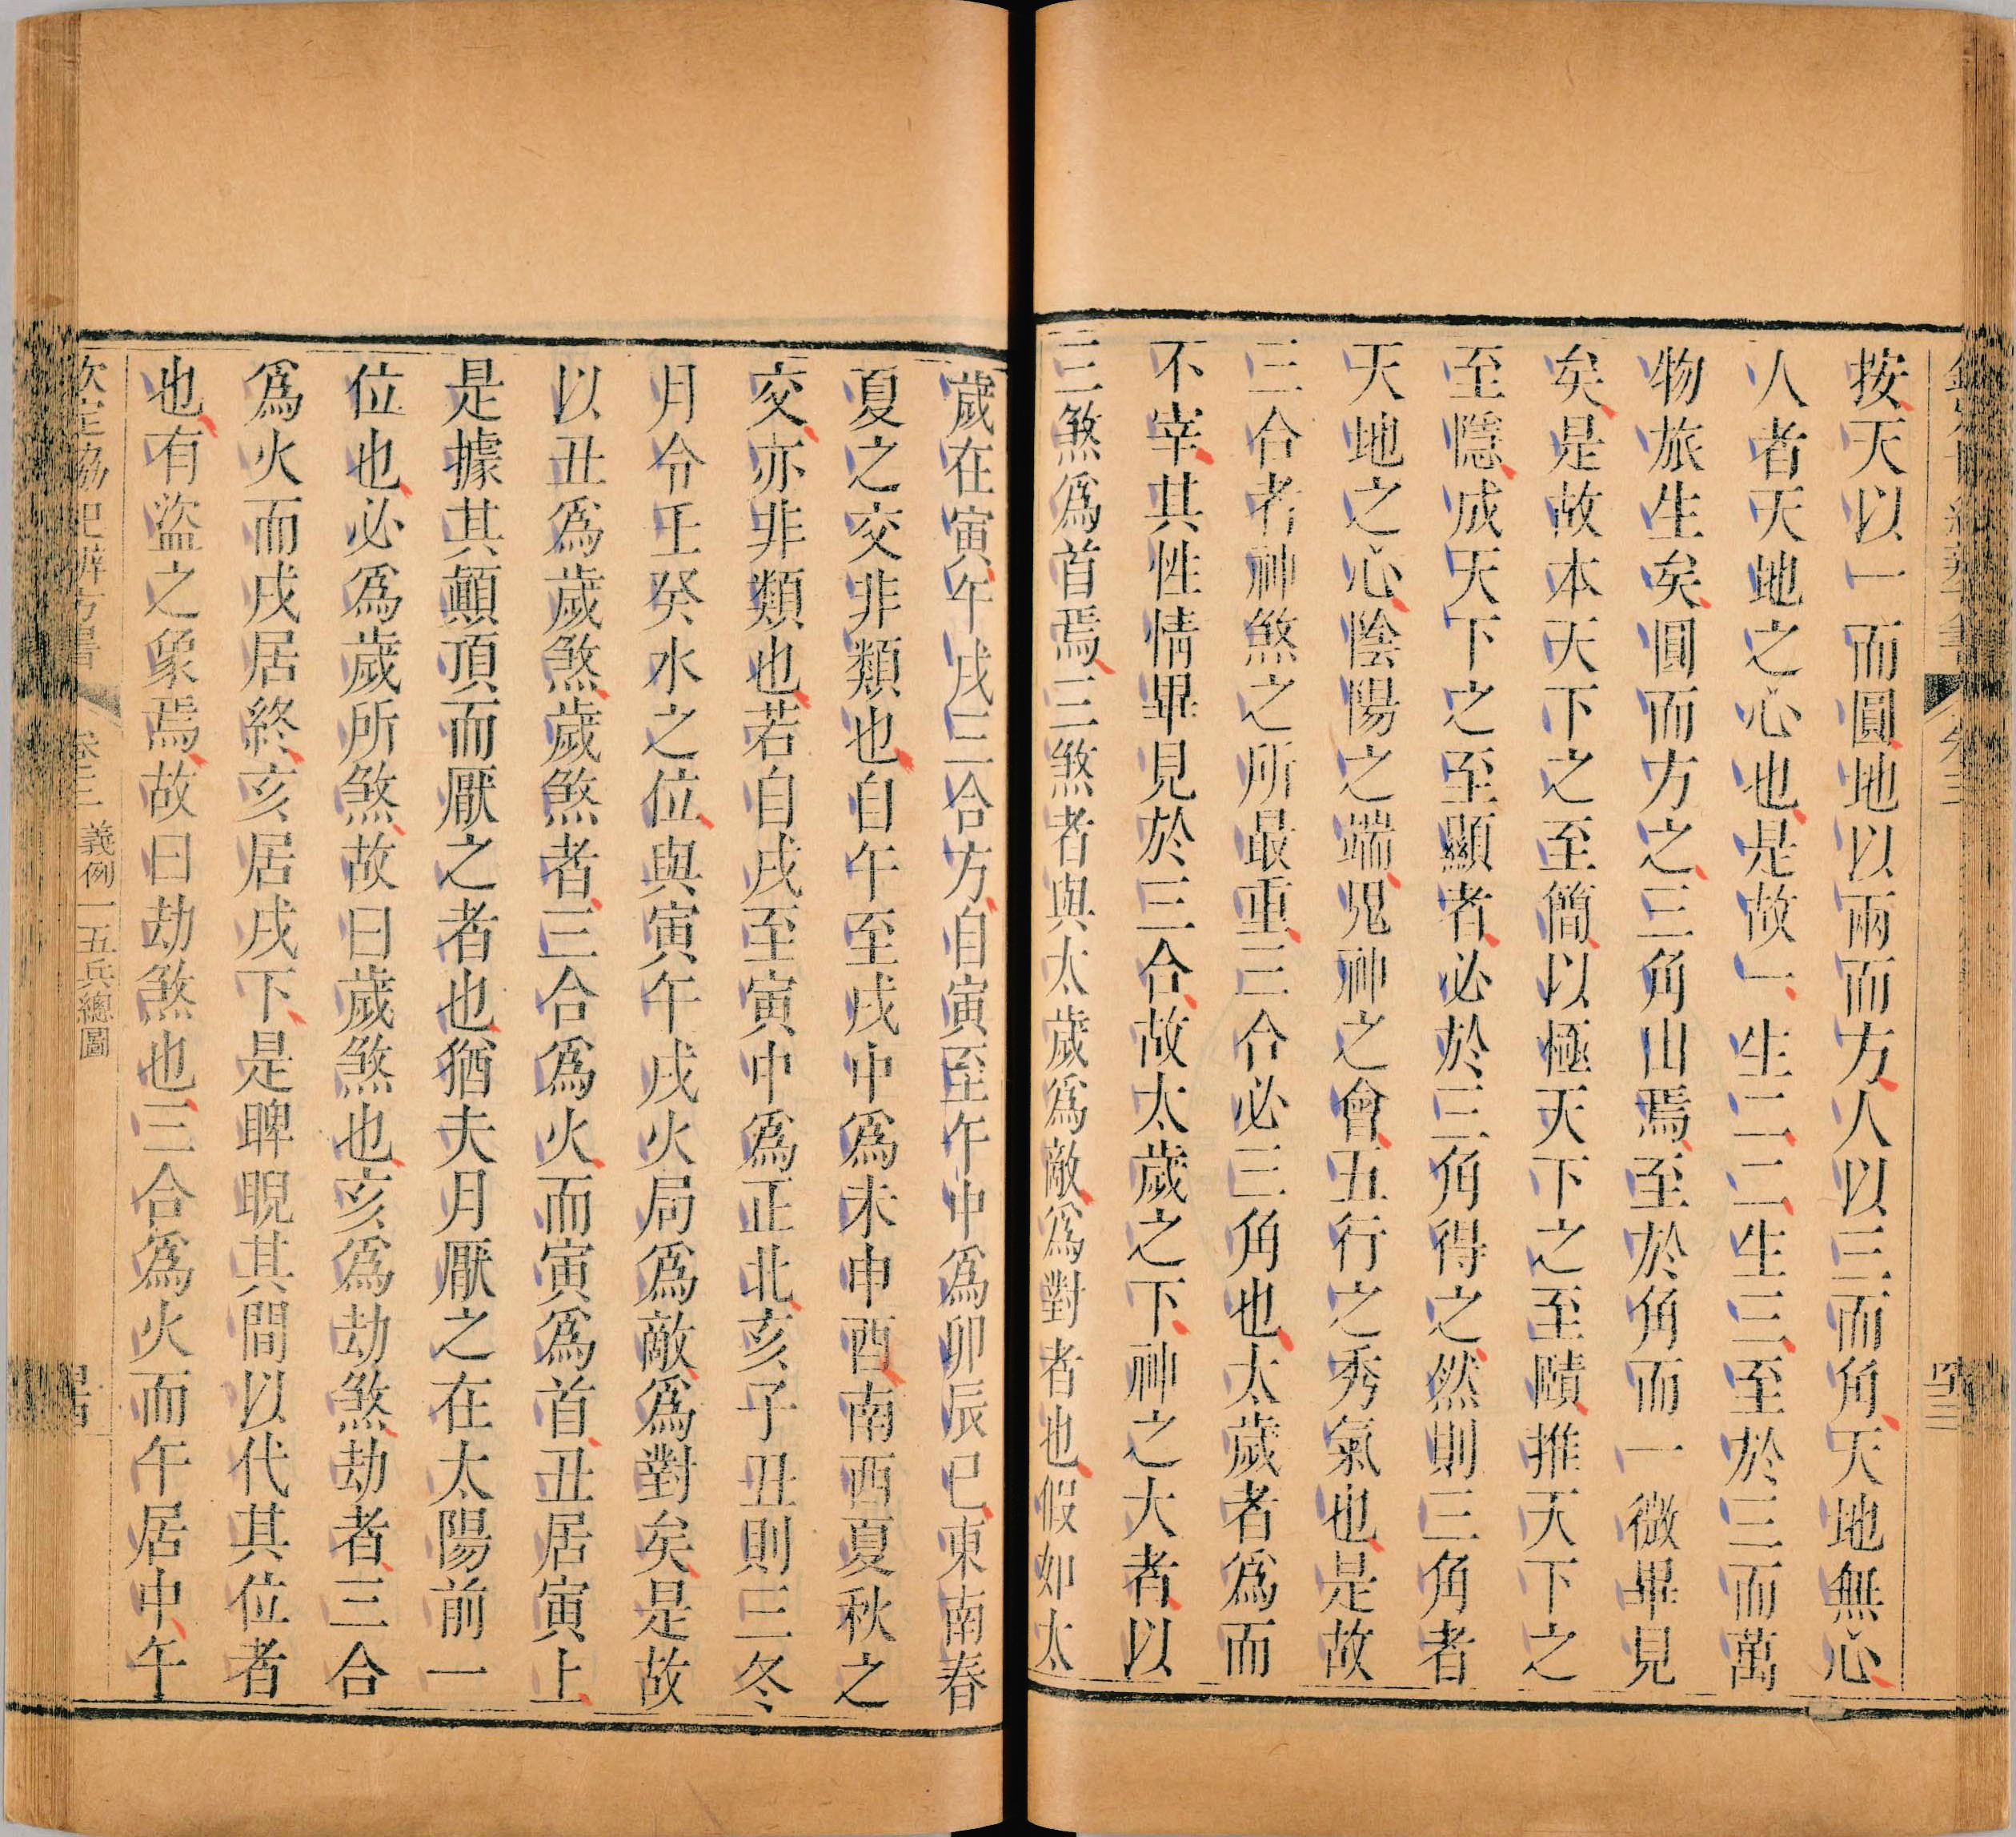 按天以一而圓地以兩而方人以三而角天地無心
人者天地之心也是故一生二二生三至於三而萬
物旅生矣圓而方之三角山焉至於角而一微畢見
矣是故本天下之至簡以極天下之至賾推天下之
至隱成天下之至顯者必於三角得之然則三角者
天地之心陰陽之端鬼神之會五行之秀氣也是故
三合者神煞之所最重三合必三角也太歲者為而
不宰其性情畢見於三合故太歲之下神之大者以
三煞為首焉三煞者與太歲為敵為對者也假如太
歲在寅午戌三合方自寅至午中為卯辰巳東南春
夏之交非類也自午至戌中為未申酉南西夏秋之
交亦非類也若自戌至寅中為正北亥子丑則三冬
月令壬癸水之位與寅午戌火局為敵為對矣是故
以丑為歲煞歲煞者三合為火而寅為首丑居寅上
是據其顚頂而厭之者也猶夫月厭之在太陽前一
位也必為歲所煞故曰歲煞也亥為劫煞劫者三合
為火而戌居終亥居戌下是睥睨其間以代其位者
也有盜之象焉故曰劫煞也三合為火而午居中午
欽定協紀辨方書 卷三 義例一五兵總圖